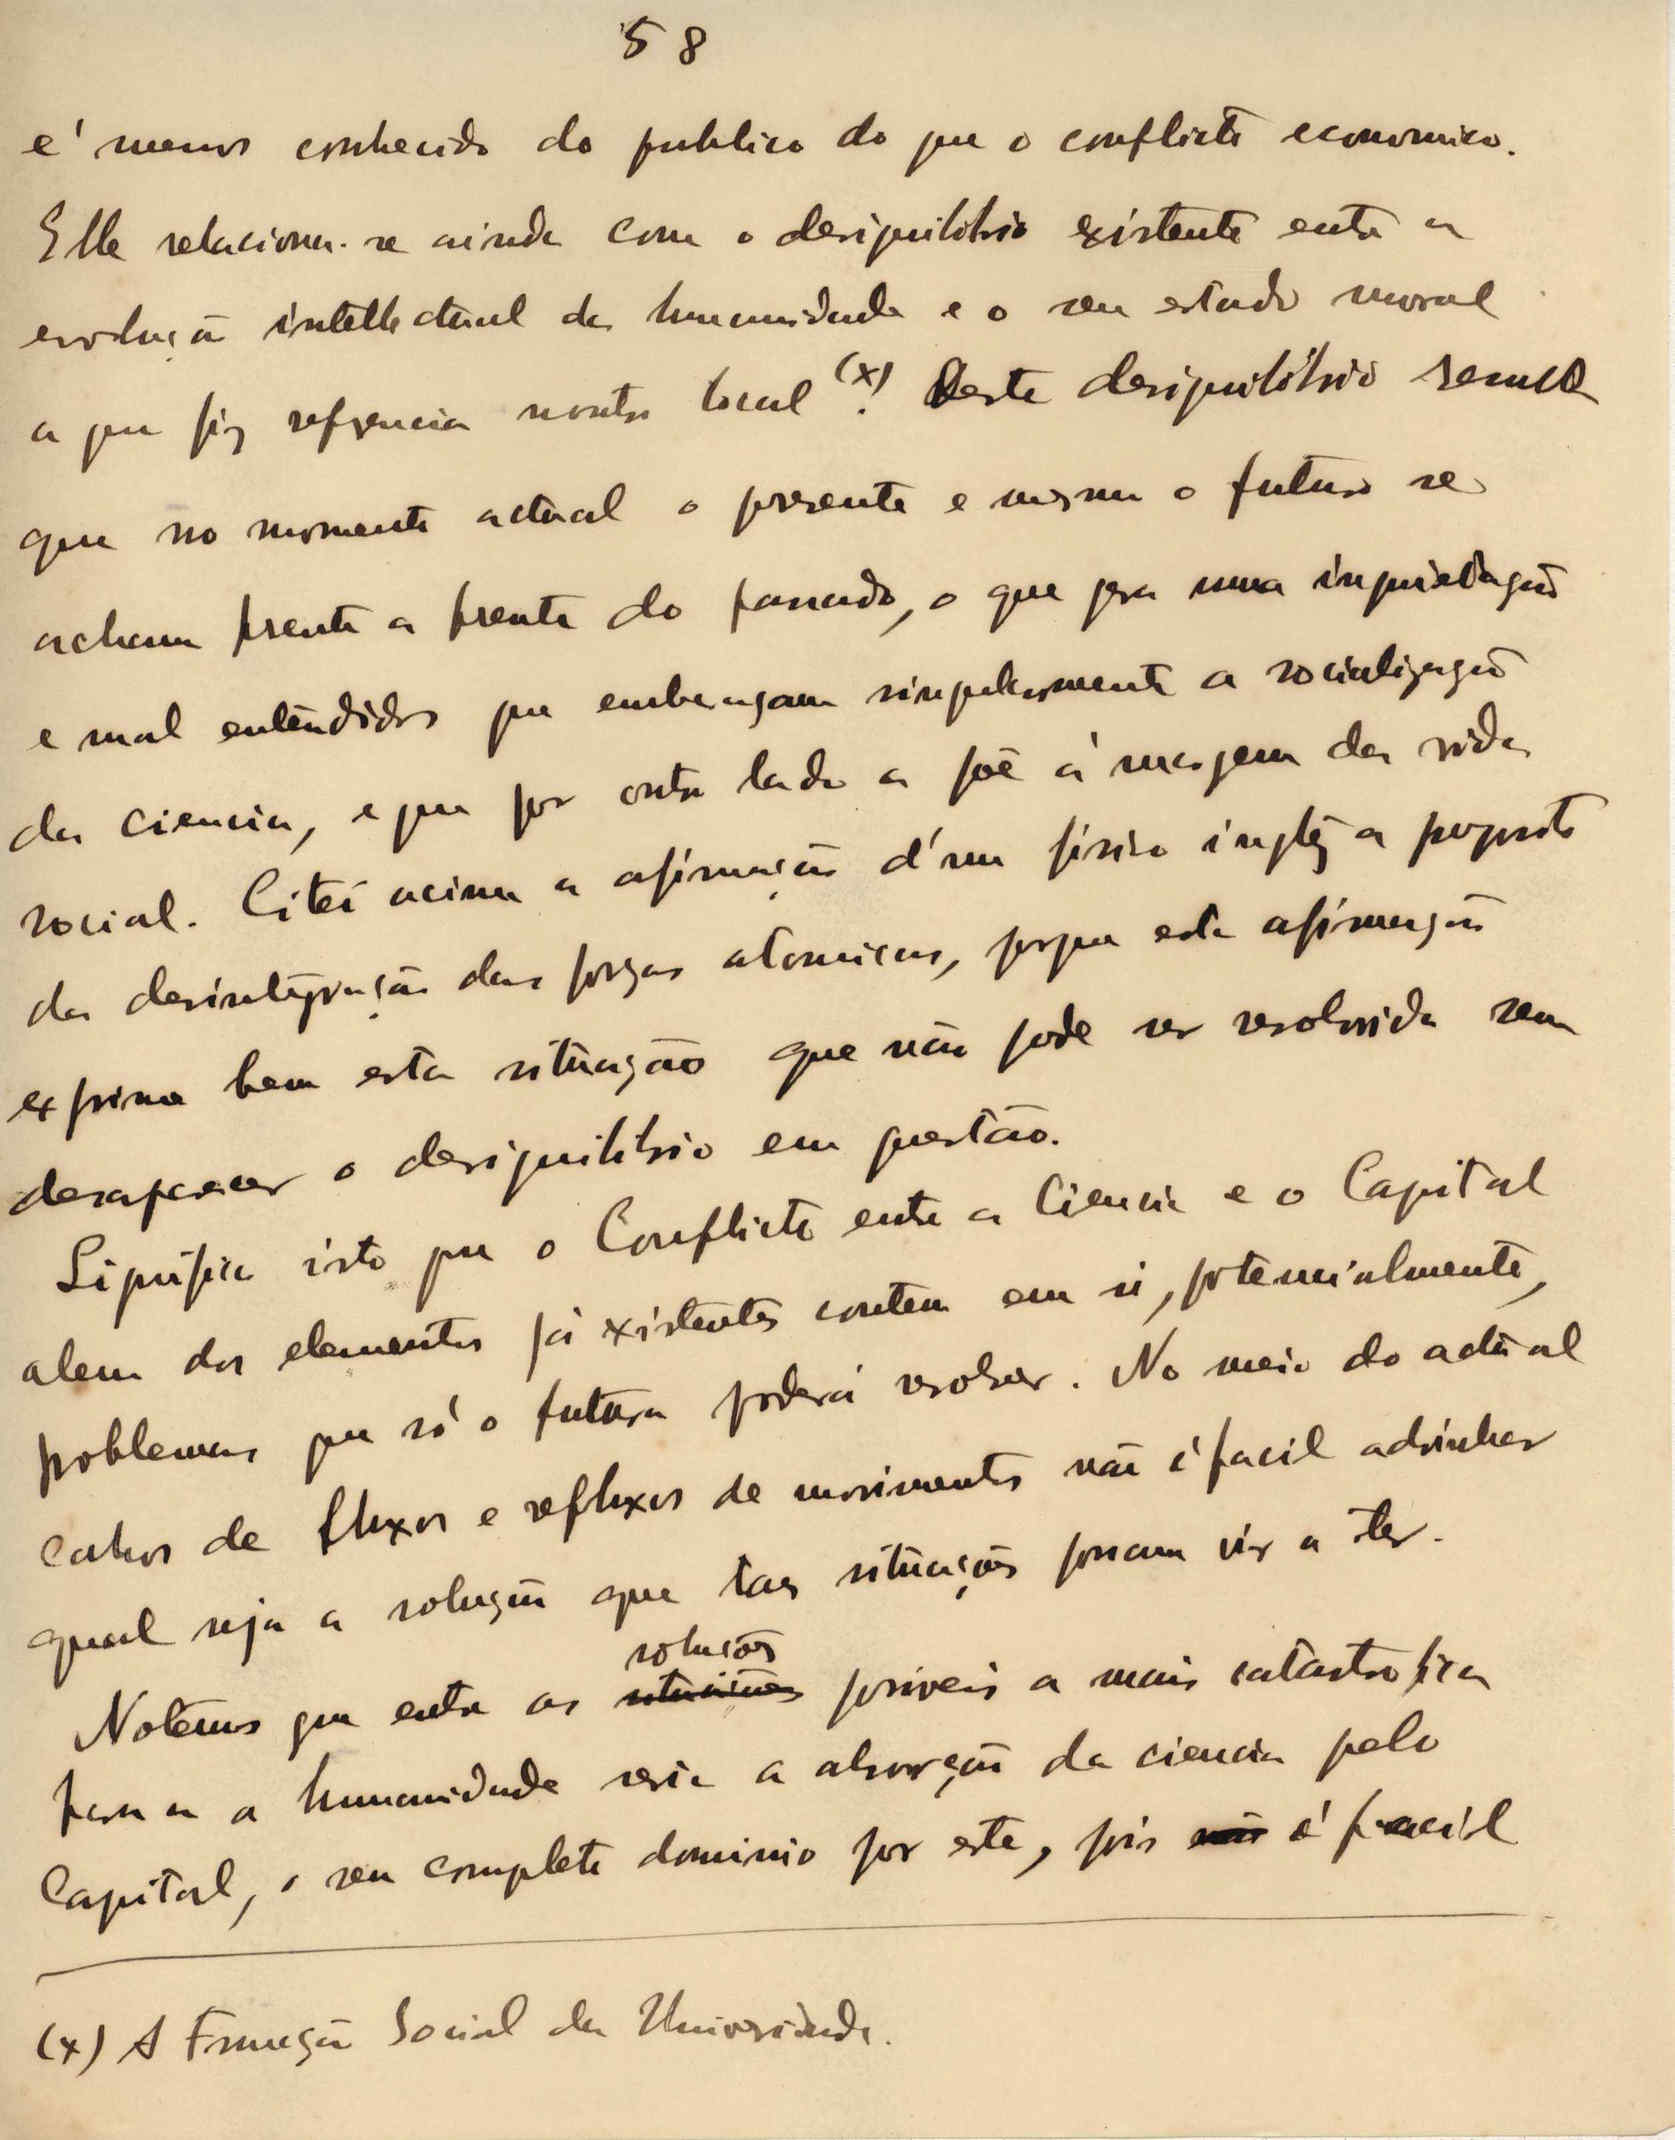 58
e' menos conhecido do publico do que o conflicto economico.
Elle relaciona-se ainda com o desiquilibrio existente entre a
evolução intellectual da humanidade e o seu estado moral
a que fiz referencia noutro local (x). Deste desiquilibrio resulta
que no momento actual o presente e mesmo o futuro se
acham frente a frente do passado, o que gera uma inquietação
e mal entendidos que embaraçam singularmente a socialização
da ciencia, e que por outro lado a põe á margem da vida
social. Citei acima a afirmação d'um fisico inglêz a proposito
da desintegração das forças atomicas, porque esta afirmação
exprime bem esta situação que não pode ser resolvida sem
desaparecer o desiquilibrio em questão.
Significa isto que o Conflicto entre a Ciencia e o Capital
alem dos elementos já existentes contem em si, potencialmente,
problemas que só o futuro poderá resolver. No meio do actual
cahos de fluxos e refluxos de movimentos não é facil adivinhar
qual seja a solução que taes situações possam vir a ter.
soluções
Notemos que entre as situações possiveis a mais catastrofica
para a humanidade seria a absorção da ciencia pelo
Capital, o seu completo dominio por este, pois não é facil
(x) A Função Social da Universidade.